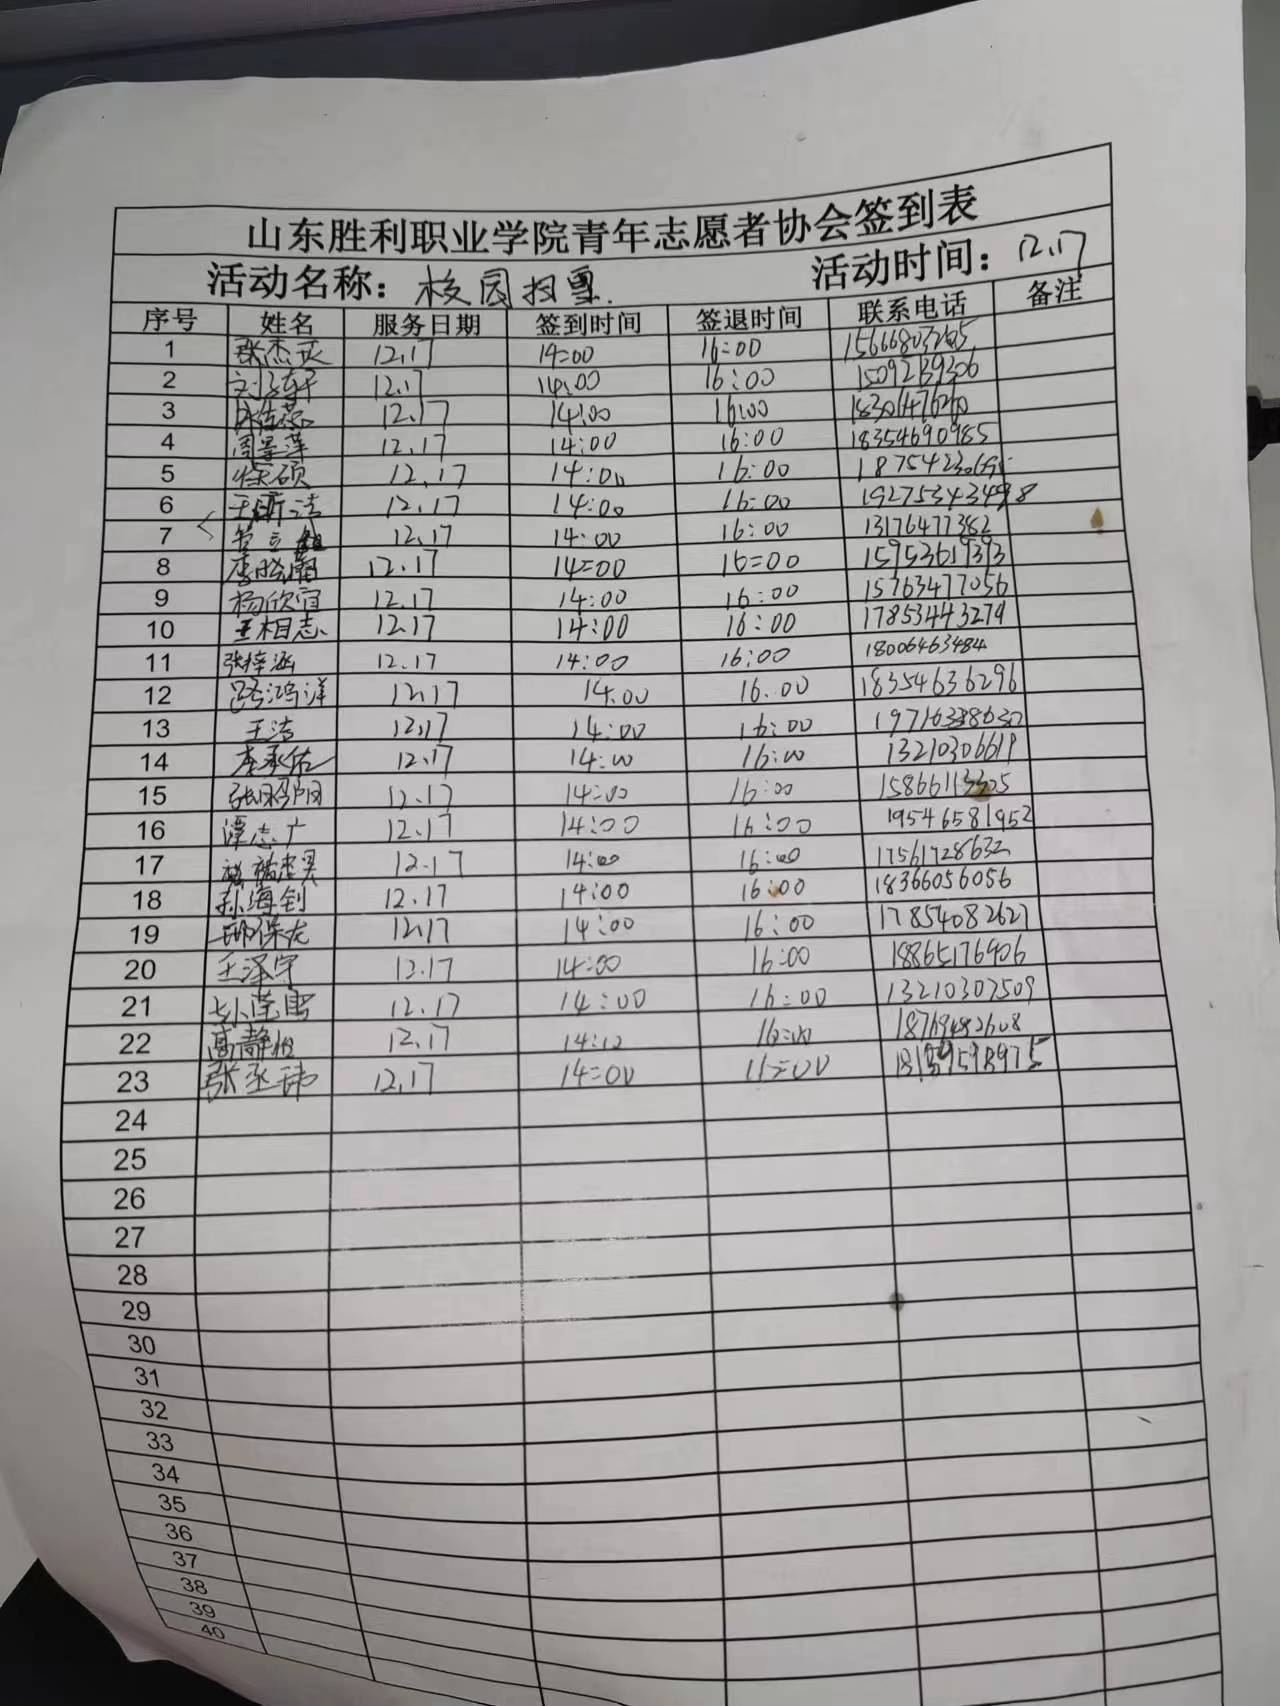 山东胜利职业学院青年志愿者协会签到表
活动名称：校园投票. 活动时间：12.17
序号 姓名 服务日期 签到时间 签退时间 联系电话 备注
1 张杰 12.17 14:00 16:00
2 12.17 14:00 16:00 15092139306
3 12.17 14:00 16:00
4 周景萍 12.17 14:00 16:00 18354690985
5 硕 12.17 14:00 16:00
6 王昕洁 12.17 14:00 16:00 19275343498
7 12.17 14:00 16:00 13176477382
8 李晓 12.17 14=00 16=00 15953619393
9 杨欣宜 12.17 14:00 16:00 15763477056
10 王相志 12.17 14:00 16:00 17853443279
11 张梓涵 12.17 14:00 16:00 18006463484
12 吕鸿洋 12.17 14.00 16.00 18354636296
13 王洁 12.17 14:00 16:00
14 李承佑 12.17 14:00 16:00 13210306619
15 12.17 14:00 16:00
16 谭志广 12.17 14:00 16:00 19546581952
17 12.17 14:00 16:00 17561728632
18 孙海钊 12.17 14:00 16:00 18366056056
19 保龙 12.17 14:00 16:00 17854082627
20 王泽宇 12.17 14:00 16:00 18865176906
21 12.17 14:00 16:00 13210307509
22 高静怡 12.17 14:12 16:00 18769482608
23 张丞玮 12.17 14=00
24
25
26
27
28
29
30
31
32
33
34
35
36
37
38
39
40